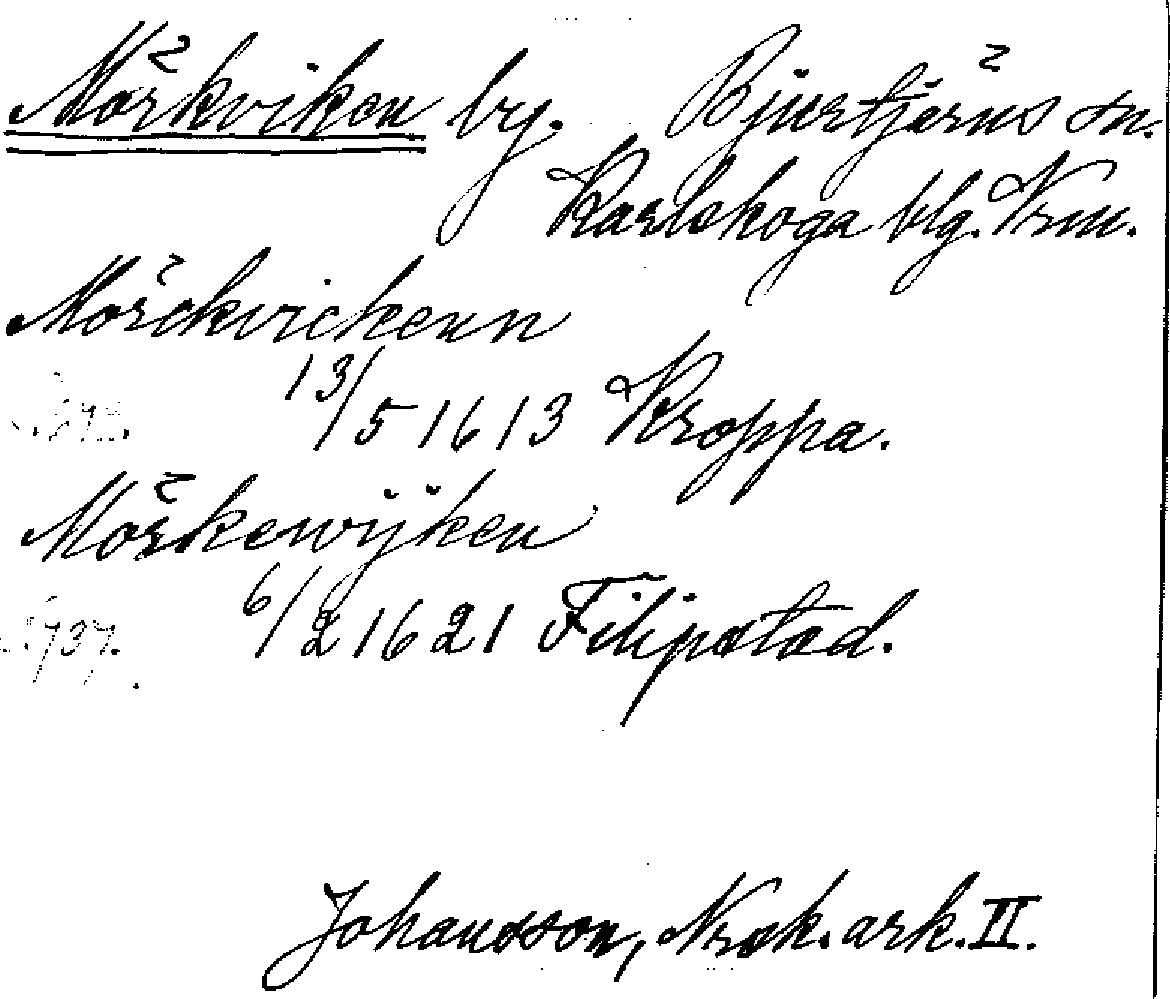 Mörkviken by. Bjurtjärns sn.
Karlskoga blg. Vrm.
Mörckvickenn
13/5 1613 Kroppa.
Mörkewijken
6/2 1621 Filipstad.
Johansson, Noraskog. ark. II.